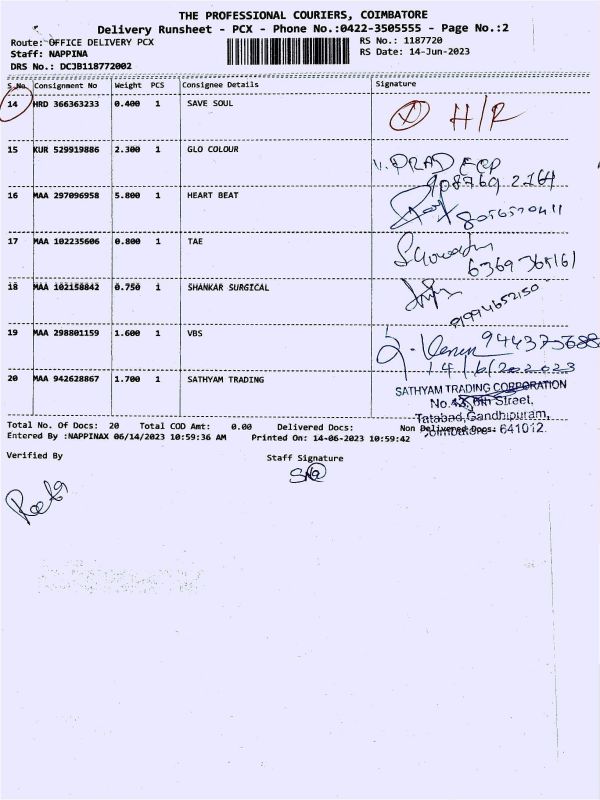 THE PROFESSIONAL COURIERS, COIMBATORE
Delivery Runsheet - PCX - Phone No.:0422-3505555 - Page No.:2
Route: OFFICE DELIVERY PCX
RS No.: 1187720
Staff: NAPPINA
RS Date: 14-Jun-2023
DRS No.: DCJB118772002
S.No. Consignment No Weight PCS Consignee Details Signature
14 HRD 366363233 0.400 1 SAVE SOUL X H/R
15 KUR 529919886 2.300 1 GLO COLOUR
16 MAA 297096958 5.800 1 HEART BEAT 8056570411
17 MAA 102235606 0.800 1 TAE
6369365161
18 MAA 102158842 0.750 1 SHANKAR SURGICAL
9994652150
19 MAA 298801159 1.600 1 VBS
20 MAA 942628867 1.700 1 SATHYAM TRADING
SATHYAM TRADING CORPORATION
No.43, 6th Street,
Tatabad, Gandhipuram,
Coimbatore - 641012.
Total No. Of Docs: 20 Total COD Amt: 0.00 Delivered Docs: Non Delivered Docs:
Entered By :NAPPINAX 06/14/2023 10:59:36 AM Printed On: 14-06-2023 10:59:42
Verified By Staff Signature